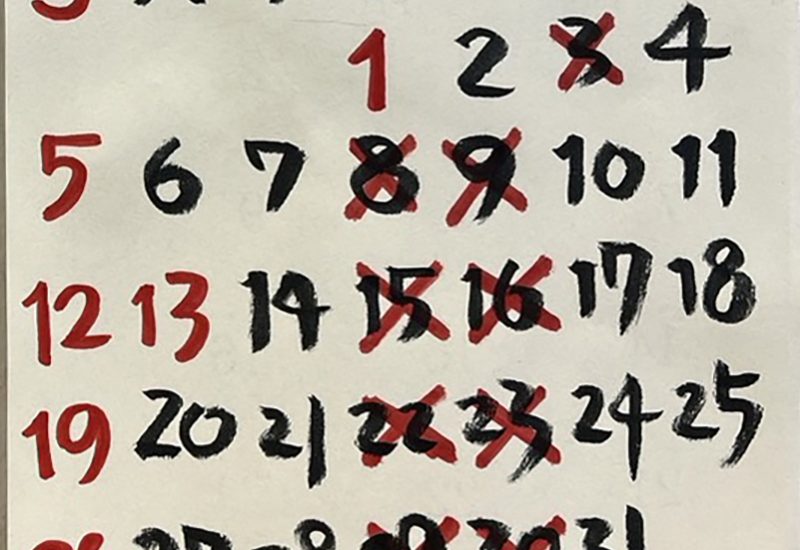 1 2 3 4
5 6 7 8 9 10 11
12 13 14 15 16 17 18
19 20 21 22 23 24 25
27 28 29 30 31